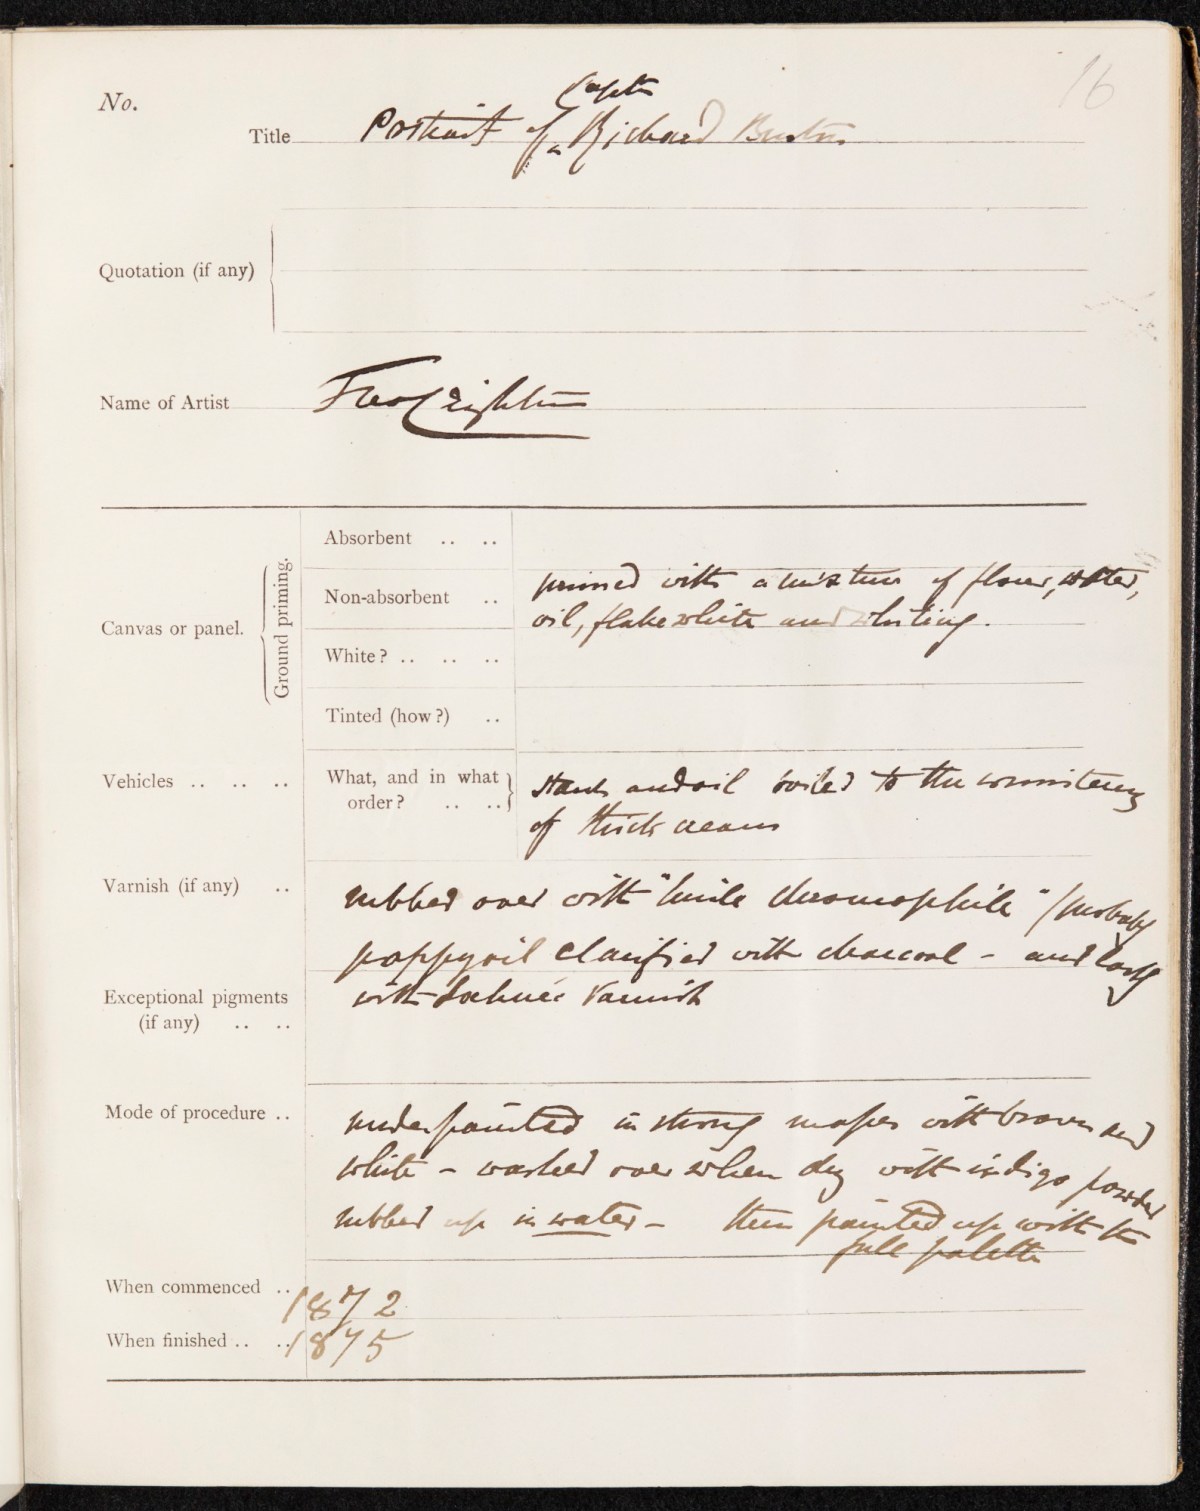 16
No.
Capt.
Title Portrait of ^ Richard Burton
Quotation (if any)
Name of Artist Fred Leighton
Absorbent .. ..
Canvas or panel. Ground priming.
Non-absorbent .. primed with a mixture of flour, water,
oil, flake white and whiting.
White? .. .. ..
Tinted (how?) ..
Vehicles .. .. .. What, and in what order? .. .. starch and oil boiled to the consistency
of thick cream
Varnish (if any) .. rubbed over with "huile chromophile" (probably
poppy oil clarified with charcoal - and lastly
Exceptional pigments (if any) .. .. with Soehnée Varnish
Mode of procedure .. underpainted in strong masses with brown and
white - washed over when dry with indigo powder
rubbed up in water - then painted up with the
full palette
When commenced .. 1872
When finished .. .. 1875